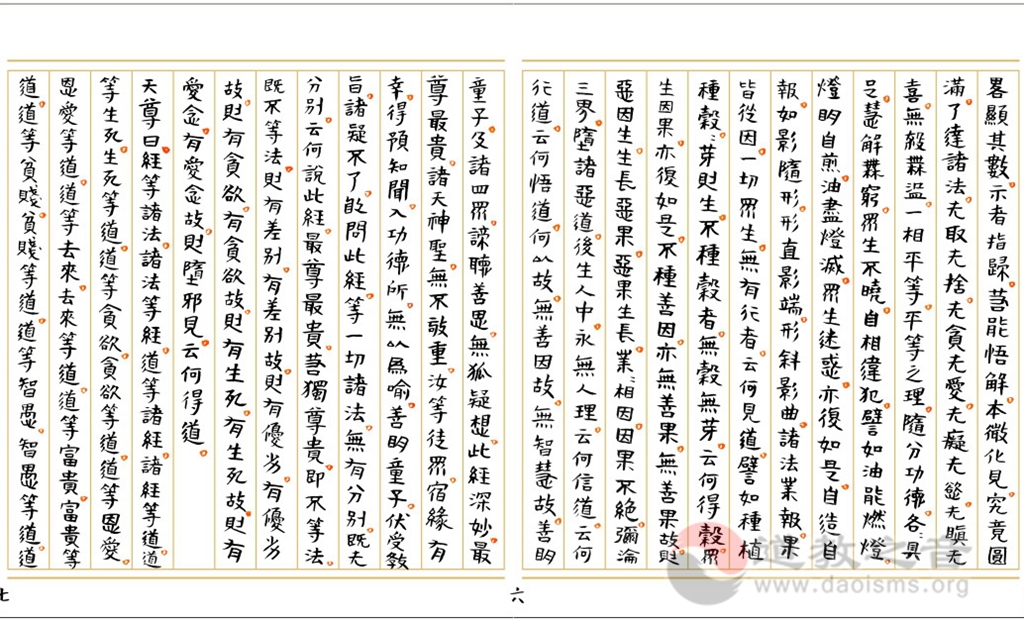 畧顯其數示者指歸若能悟解本微化見究竟圓
滿了達諸法无取无捨无貪无愛无癡无慾无瞋无
喜無殺無盜一相平等平等之理隨分功德各各具
足慧解無窮眾生不曉自相違犯譬如油能燃燈
燈明自煎油盡燈滅眾生迷惑亦復如是自造自
報如影隨形形直影端形斜影曲諸法業報果
皆從因一切眾生無有行者云何見道譬如種植
種穀芽則生不種穀者無穀無芽云何得穀眾
生因果亦復如是不種善因亦無善果無善果故則
惡因生生長惡果惡果生長業業相因因果不絕彌淪
三界墮諸惡道後生人中永無人理云何信道云何
行道云何悟道何以故無善因故無智慧故善明
六
童子及諸四眾諦聽善思無狐疑想此經深妙最
尊最貴諸天神聖無不敬重汝等徒眾宿緣有
幸得預知聞入功德所無以為喻善明童子伏受教
旨諸疑不了敢問此經等一切諸法無有分別既无
分別云何說此經最尊最貴若獨尊貴即不等法
既不等法則有差別有差別故則有優劣有優劣
故則有貪欲有貪欲故則有生死有生死故則有
愛念有愛念故則墮邪見云何得道
天尊曰經等諸法諸法等經道等諸經諸經等道道
等生死生死等道道等貪欲貪欲等道道等恩愛
恩愛等道道等去來去來等道道等富貴富貴等
道道等貧賤貧賤等道道等智愚智愚等道道
七
道教之音
www.daoisms.org